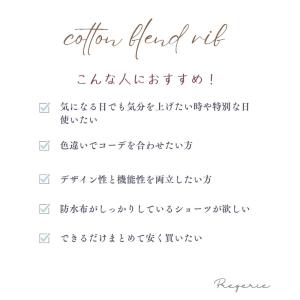 cotton blend rib
こんな人におすすめ！
気になる日でも気分を上げたい時や特別な日
使いたい
色違いでコーデを合わせたい方
デザイン性と機能性を両立したい方
防水布がしっかりしているショーツが欲しい
できるだけまとめて安く買いたい
Regerie